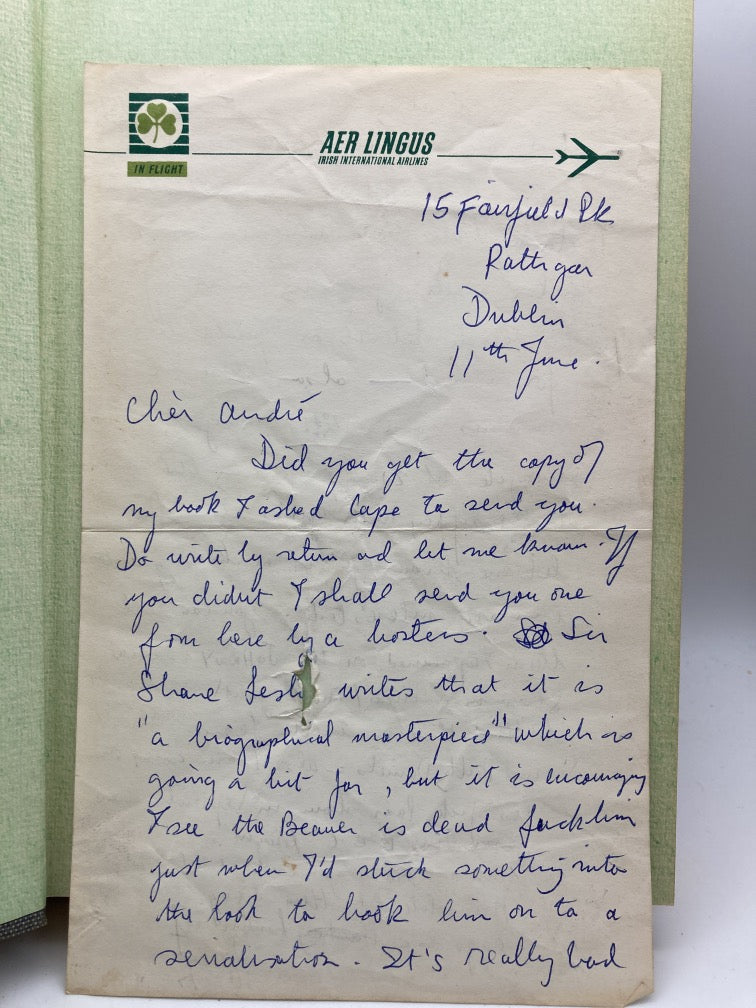 IN FLIGHT
AER LINGUS
IRISH INTERNATIONAL AIRLINES
15 Fairfield Pk
Rathgar
Dublin
11th June.
Cher André
Did you get the copy of
my book I asked Cape to send you.
Do write by return and let me know. If
you didnt I shall send you one
from here by a hosters. Sir
Shane Leslie writes that it is
"a biographical masterpiece" which is
going a bit far, but it is encouraging
I see the Beaver is dead fuck him
just when I'd stuck something into
the book to hook him on to a
serialisation. It's really bad